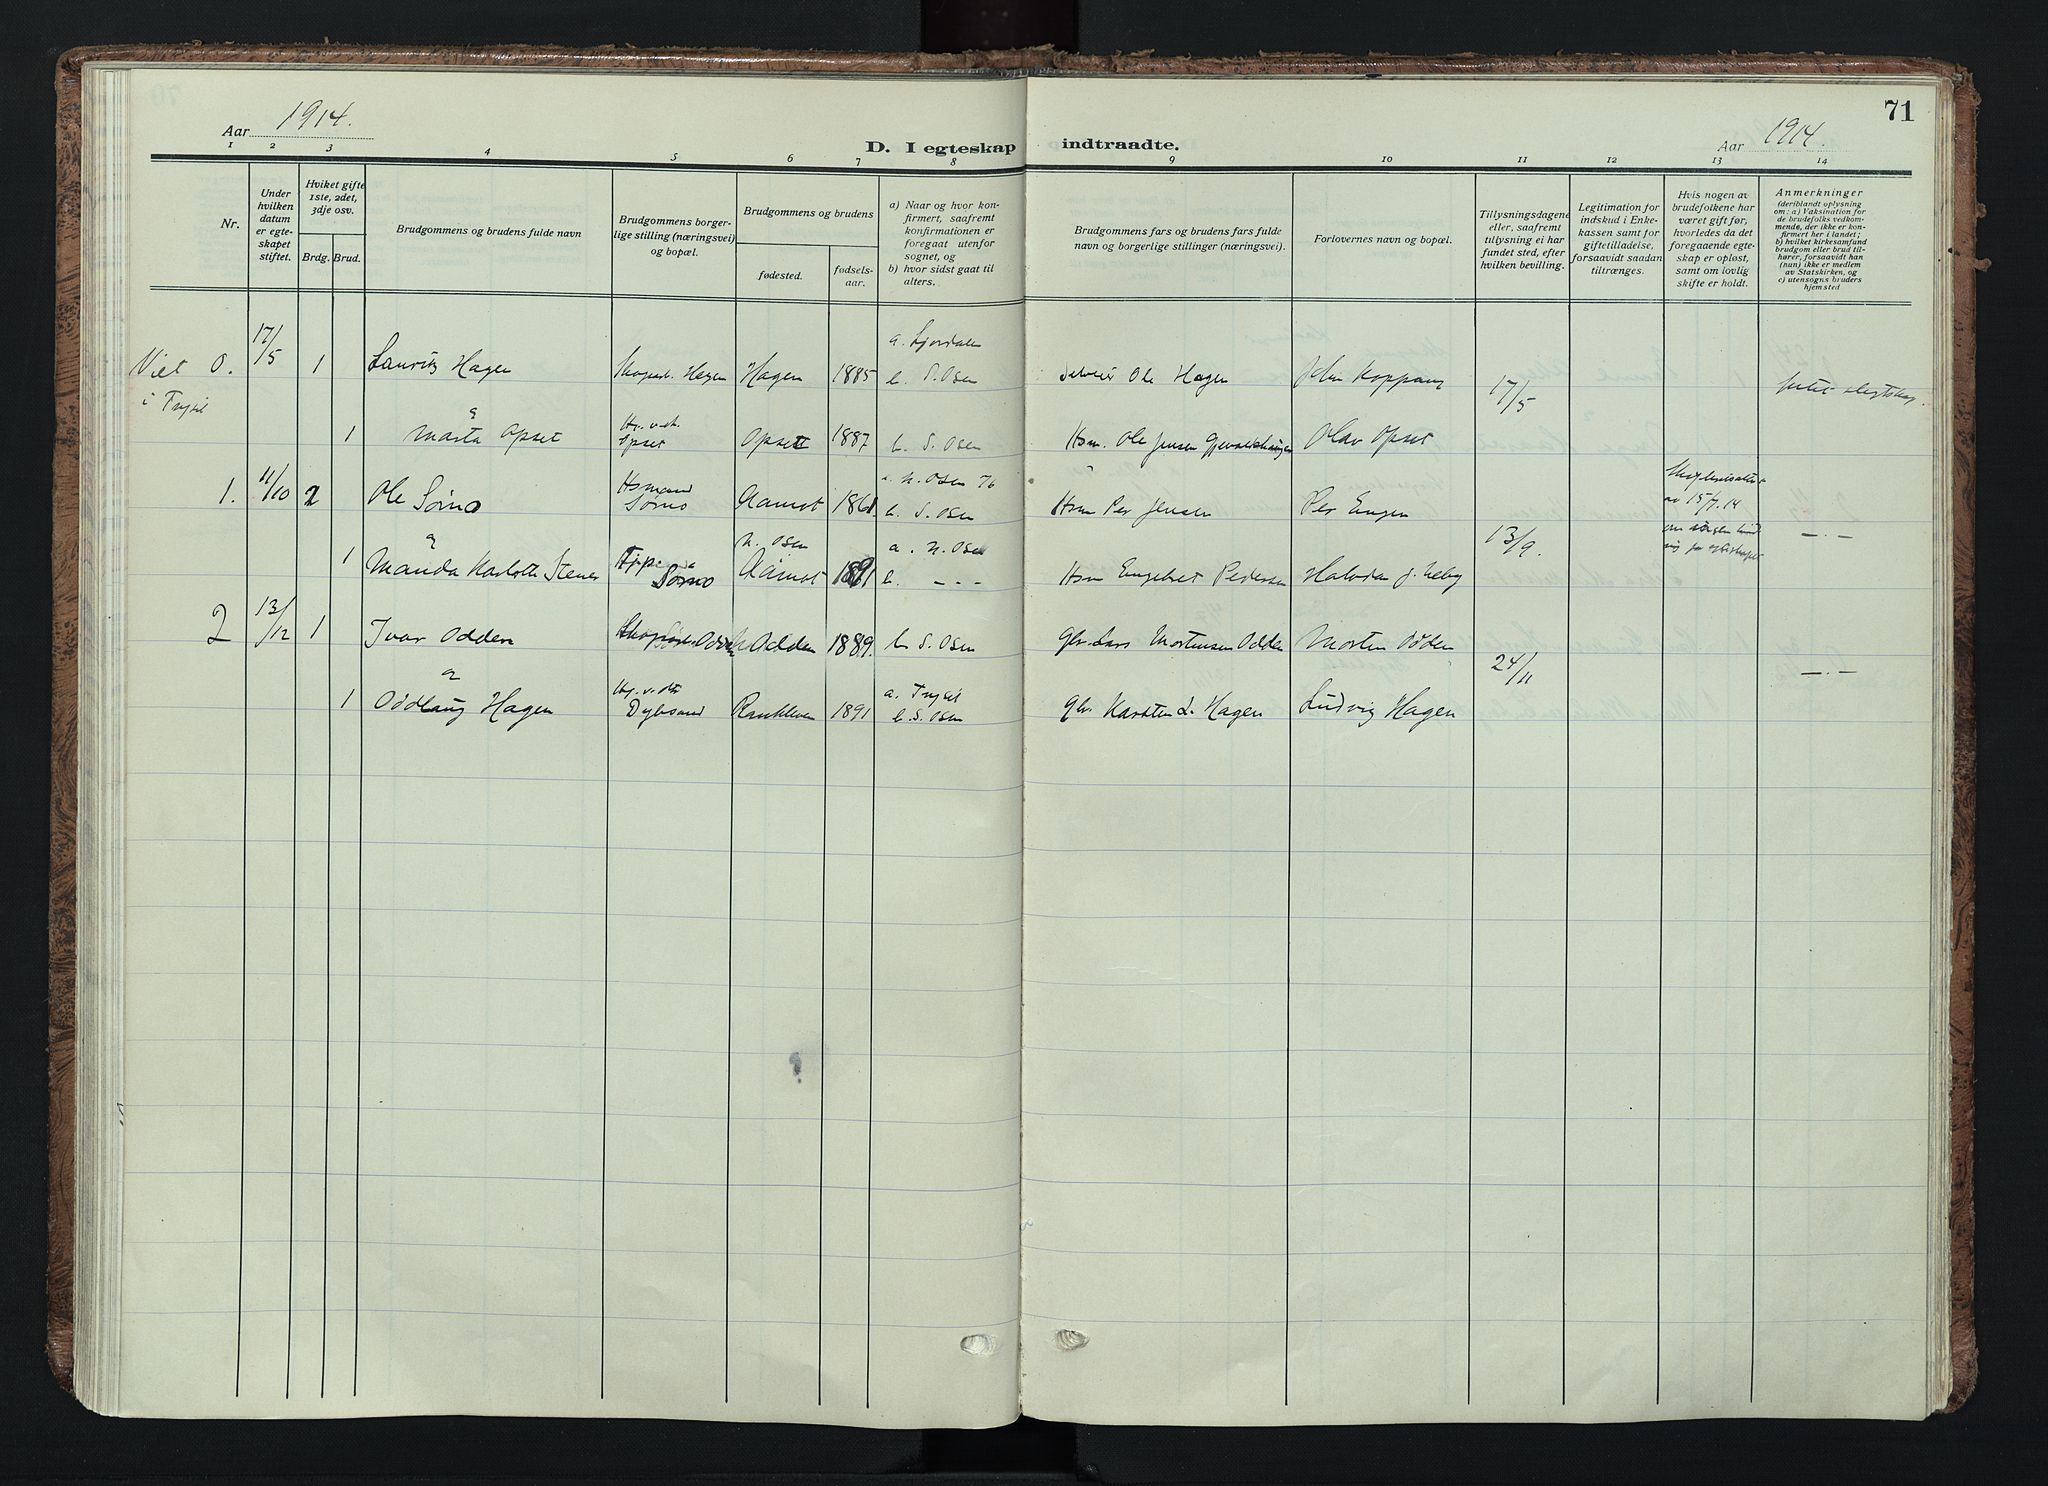 71
Aar 1914.
D. I egteskap indtraadte.
Aar 1914.
1 2 3 4 5 6 7 8 9 10 11 12 13 14
Nr.
Under hvilken datum er egteskapet stiftet.
Hviket gifte 1ste, 2det, 3dje osv.
Brdg. Brud.
Brudgommens og brudens fulde navn
Brudgommens borgerlige stilling (næringsvei) og bopæl.
Brudgommens og brudens
fødested.
fødselsaar.
a) Naar og hvor konfirmert, saafremt konfirmationen er foregaat utenfor sognet, og
b) hvor sidst gaat til alters.
Brudgommens fars og brudens fars fulde navn og borgerlige stillinger (næringsvei).
Forlovernes navn og bopæl.
Tillysningsdagene eller, saafremt tillysning ei har fundet sted, efter hvilken bevilling.
Legitimation for indskud i Enkekassen samt for giftetilladelse, forsaavidt saadan tiltrænges.
Hvis nogen av brudefolkene har været gift før, hvorledes da det foregaaende egteskap er opløst, samt om lovlig skifte er holdt.
Anmerkninger
(deriblandt oplysning om: a) Vaksination for de brudefolks vedkommende, der ikke er konfirmert her i landet; b) hvilket kirkesamfund brudgom eller brud tilhører, forsaavidt han (hun) ikke er medlem av Statskirken, og c) utensogns bruders hjemsted
Viet i Trysil
0. 17/5 1 Lauritz Hagen Hagen Hagen 1885 a. Ljordalen b. S. Osen Ole Hagen John Koppang 17/5
&
1 Marta Opset Opset Opsett 1887 b. S. Osen Hsm. Ole Jensen Olav Opset
1. 11/10 2 Ole Sørno Hsmand Sørno Aamot 1861. a. N. Osen 76 b. S. Osen Hsm Per Jensen Per Engen 13/9. av 15/7.14 — . —
&
1 Manda Karlotte Stenes Sørno N. Osen Aamot 1891 a. N. Osen b. — . — Hsm Engebret Pedersen Halvdan J. Neby
2 13/12 1 Ivar Odden Odden Odden 1889. b. S. Osen Gbr. Lars Mortensen Odden Morten Odden 24/11 — . —
&
1 Oddlaug Hagen Rankleven 1891 a. Trysil b. S. Osen Gbr. Karsten L. Hagen Ludvig Hagen